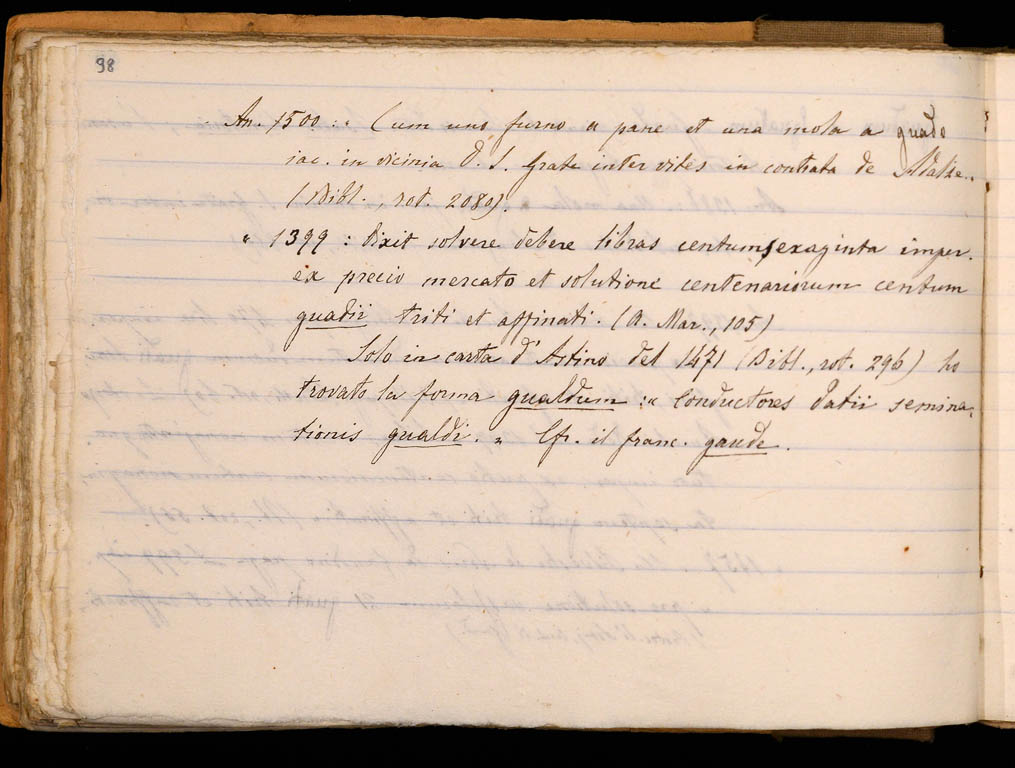 98
An. 1500: „ Cum uno furno a pane et una mola a guado
iac. in vicinia D. S. Grate inter vites in contrata de
(Bibl., rot. 2080).
„ 1399: Dixit solvere debere libras centumsexaginta imper.
ex precio mercato et solutione centenariorum centum
guadii triti et affinati. (A. Mar., 105)
Solo in carta d'Astino del 1471 (Bibl., rot. 296) ho
trovato la forma gualdum: „ Conductores datii semina-
tionis gualdi. „ Cfr. il franc. gaude.